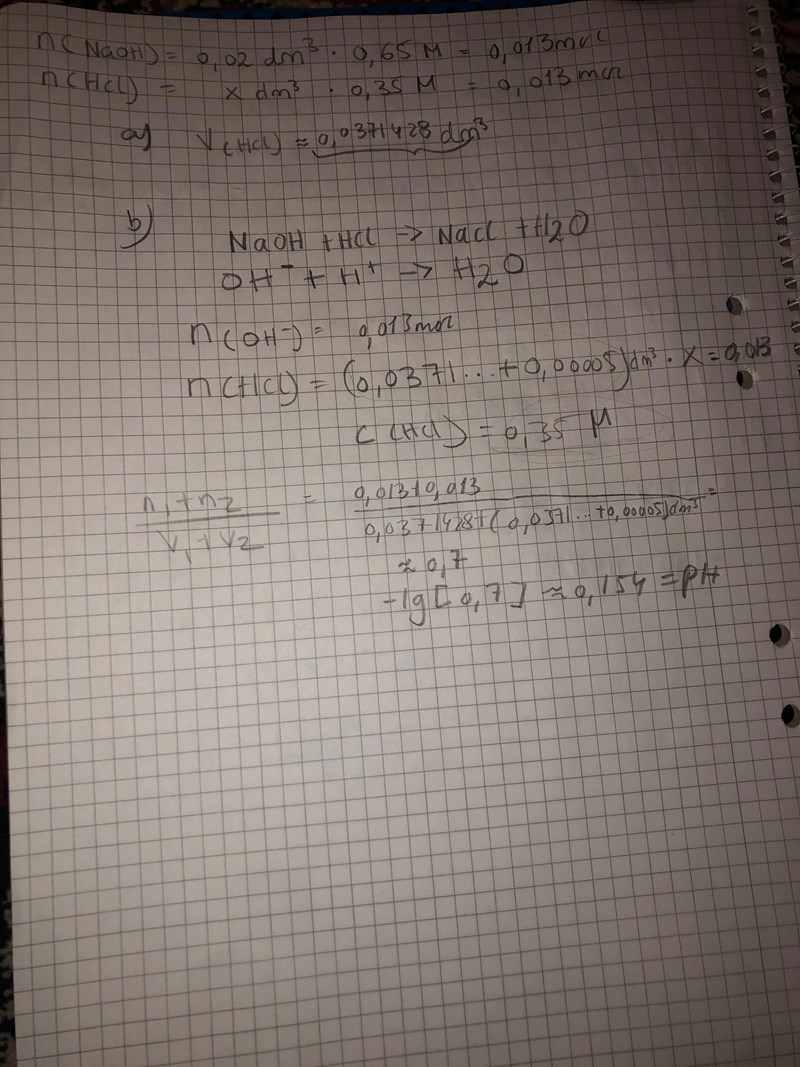 n(NaOH) = 0,02 dm³ · 0,65 M = 0,013mol
n(HCl) = x dm³ · 0,35 M = 0,013 mol
a) V(HCl) = 0,0371428 dm³
b)
NaOH + HCl → NaCl + H2O
OH⁻ + H⁺ → H2O
n(OH⁻) = 0,013mol
n(HCl) = (0,0371...+0,00005)dm³ · x = 0,013
c(HCl) = 0,35 M
n₁+n₂ / V₁+V₂ = 0,013+0,013 / 0,0371428+(0,0371...+0,00005)dm³ =
≈ 0,7
-lg[0,7] ≈ 0,154 = pH